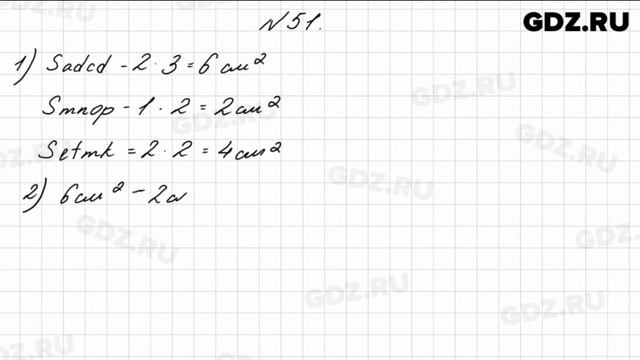 N 51.
GDZ.RU
1) Sadcd - 2 · 3 = 6 см²
Smnop - 1 · 2 = 2 см²
Setmk = 2 · 2 = 4 см²
2) 6 см² - 2 с
GDZ.RU
GDZ.RU
GDZ.RU
GDZ.RU
GDZ.RU
GDZ.RU
GDZ.RU
GDZ.RU
GDZ.RU
GDZ.RU